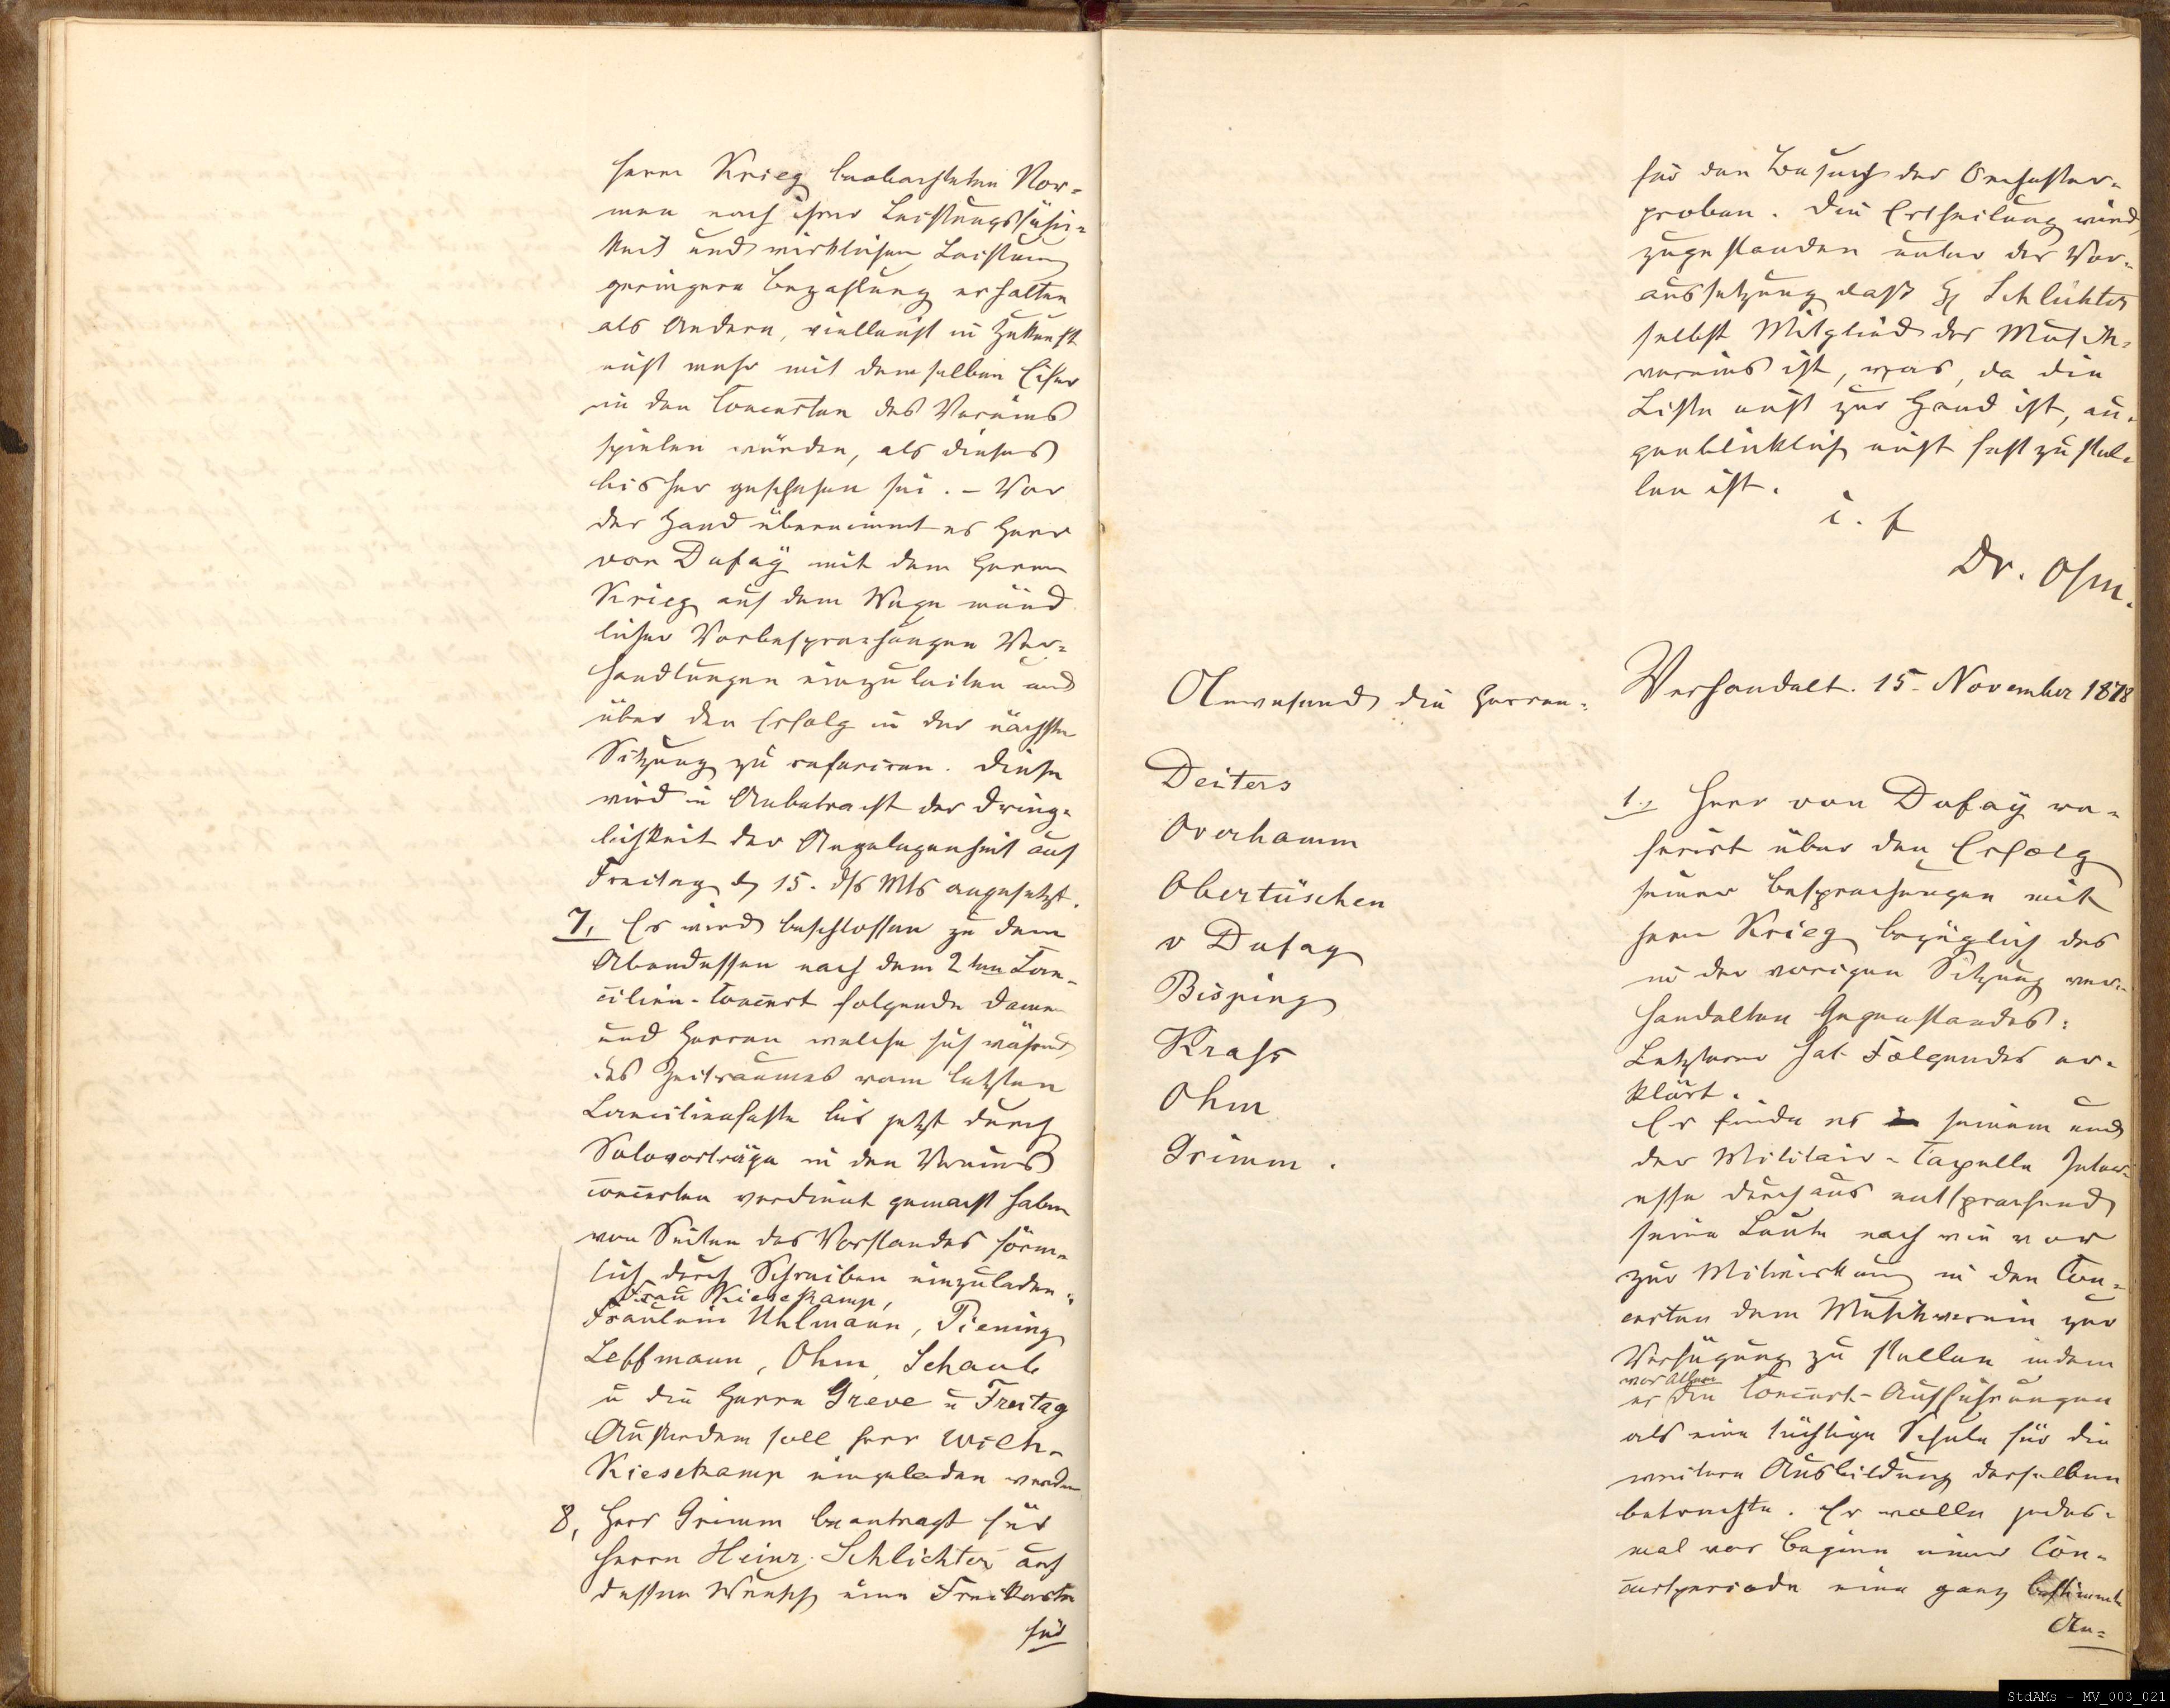 Herrn Krieg beobachteten Nor-
men nach ihrer Leistungsfähig-
keit und wirklichen Leistung
geringere Bezahlung erhalten
als Andere, vielleicht in Zukunft
nicht mehr mit demselben Eifer
in den Concerten des Vereins
spielen würden, als dieses
bisher geschehen sei. – Vor
der Hand übernimmt es Herr
von Dufaÿ mit dem Herrn
Krieg auf dem Wege münd
licher Vorbesprechungen Ver-
handlungen einzuleiten und
über den Erfolg in der nächsten
Sitzung zu referiren. Diese
wird in Anbetracht der Dring-
lichkeit der Angelegenheit auf
Freitag d 15. dss Mts angesetzt.
7, Es wird beschlossen zu dem
Abendessen nach dem 2ten Cae-
cilien-Concert folgende Damen
und Herren welche sich während
des Zeitraumes vom letzten
Caecilienfeste bis jetzt durch
Solovorträge in den Vereins
concerten verdient gemacht haben
von Seiten des Vorstandes förm-
lich durch Schreiben einzuladen:
Frau Kiesekamp,
Fräulein Uhlmann, Piening
Leffmann, Ohm, Schaub
u die Herrn Greve u Freitag
Außerdem soll Herr Wilh.
Kiesekamp eingeladen werden
8, Herr Grimm beantragt für
Herrn Heinr. Schlichter auf
dessen Wunsch eine Freikarte
für
für den Besuch der Orchester-
proben. Die Ertheilung wird
zugestanden unter der Vor-
aussetzung daß H Schlichter
selbst Mitglied des Musik-
vereins ist, was, da die
Liste nicht zur Hand ist, au-
genblicklich nicht fest zu stel-
len ist.
i. f
Dr. Ohm.
Anwesend die Herren:
Deiters
Overhamm
Obertüschen
v Dufay
Bisping
Krass
Ohm
Grimm.
Verhandelt. 15. November 1878
1., Herr von Dufaÿ re-
ferirt über den Erfolg
seiner Besprechungen mit
Herrn Krieg bezüglich des
in der vorigen Sitzung ver-
handelten Gegenstandes:
Letzterer hat Folgendes er-
klärt.
Er finde es in seinem und
der Militair-Capelle Inter-
esse durchaus entsprechend
seine Leute nach wie vor
zur Mitwirkung in den Con-
certen dem Musikverein zur
Verfügung zu stellen indem
vor Allem
er die Concert-Aufführungen
als eine tüchtige Schule für die
weitere Ausbildung derselben
betrachte. Er wolle jedes-
mal vor Beginn einer Con-
certperiode eine ganz bestimmte
An-
StdAMs – MV_003_021